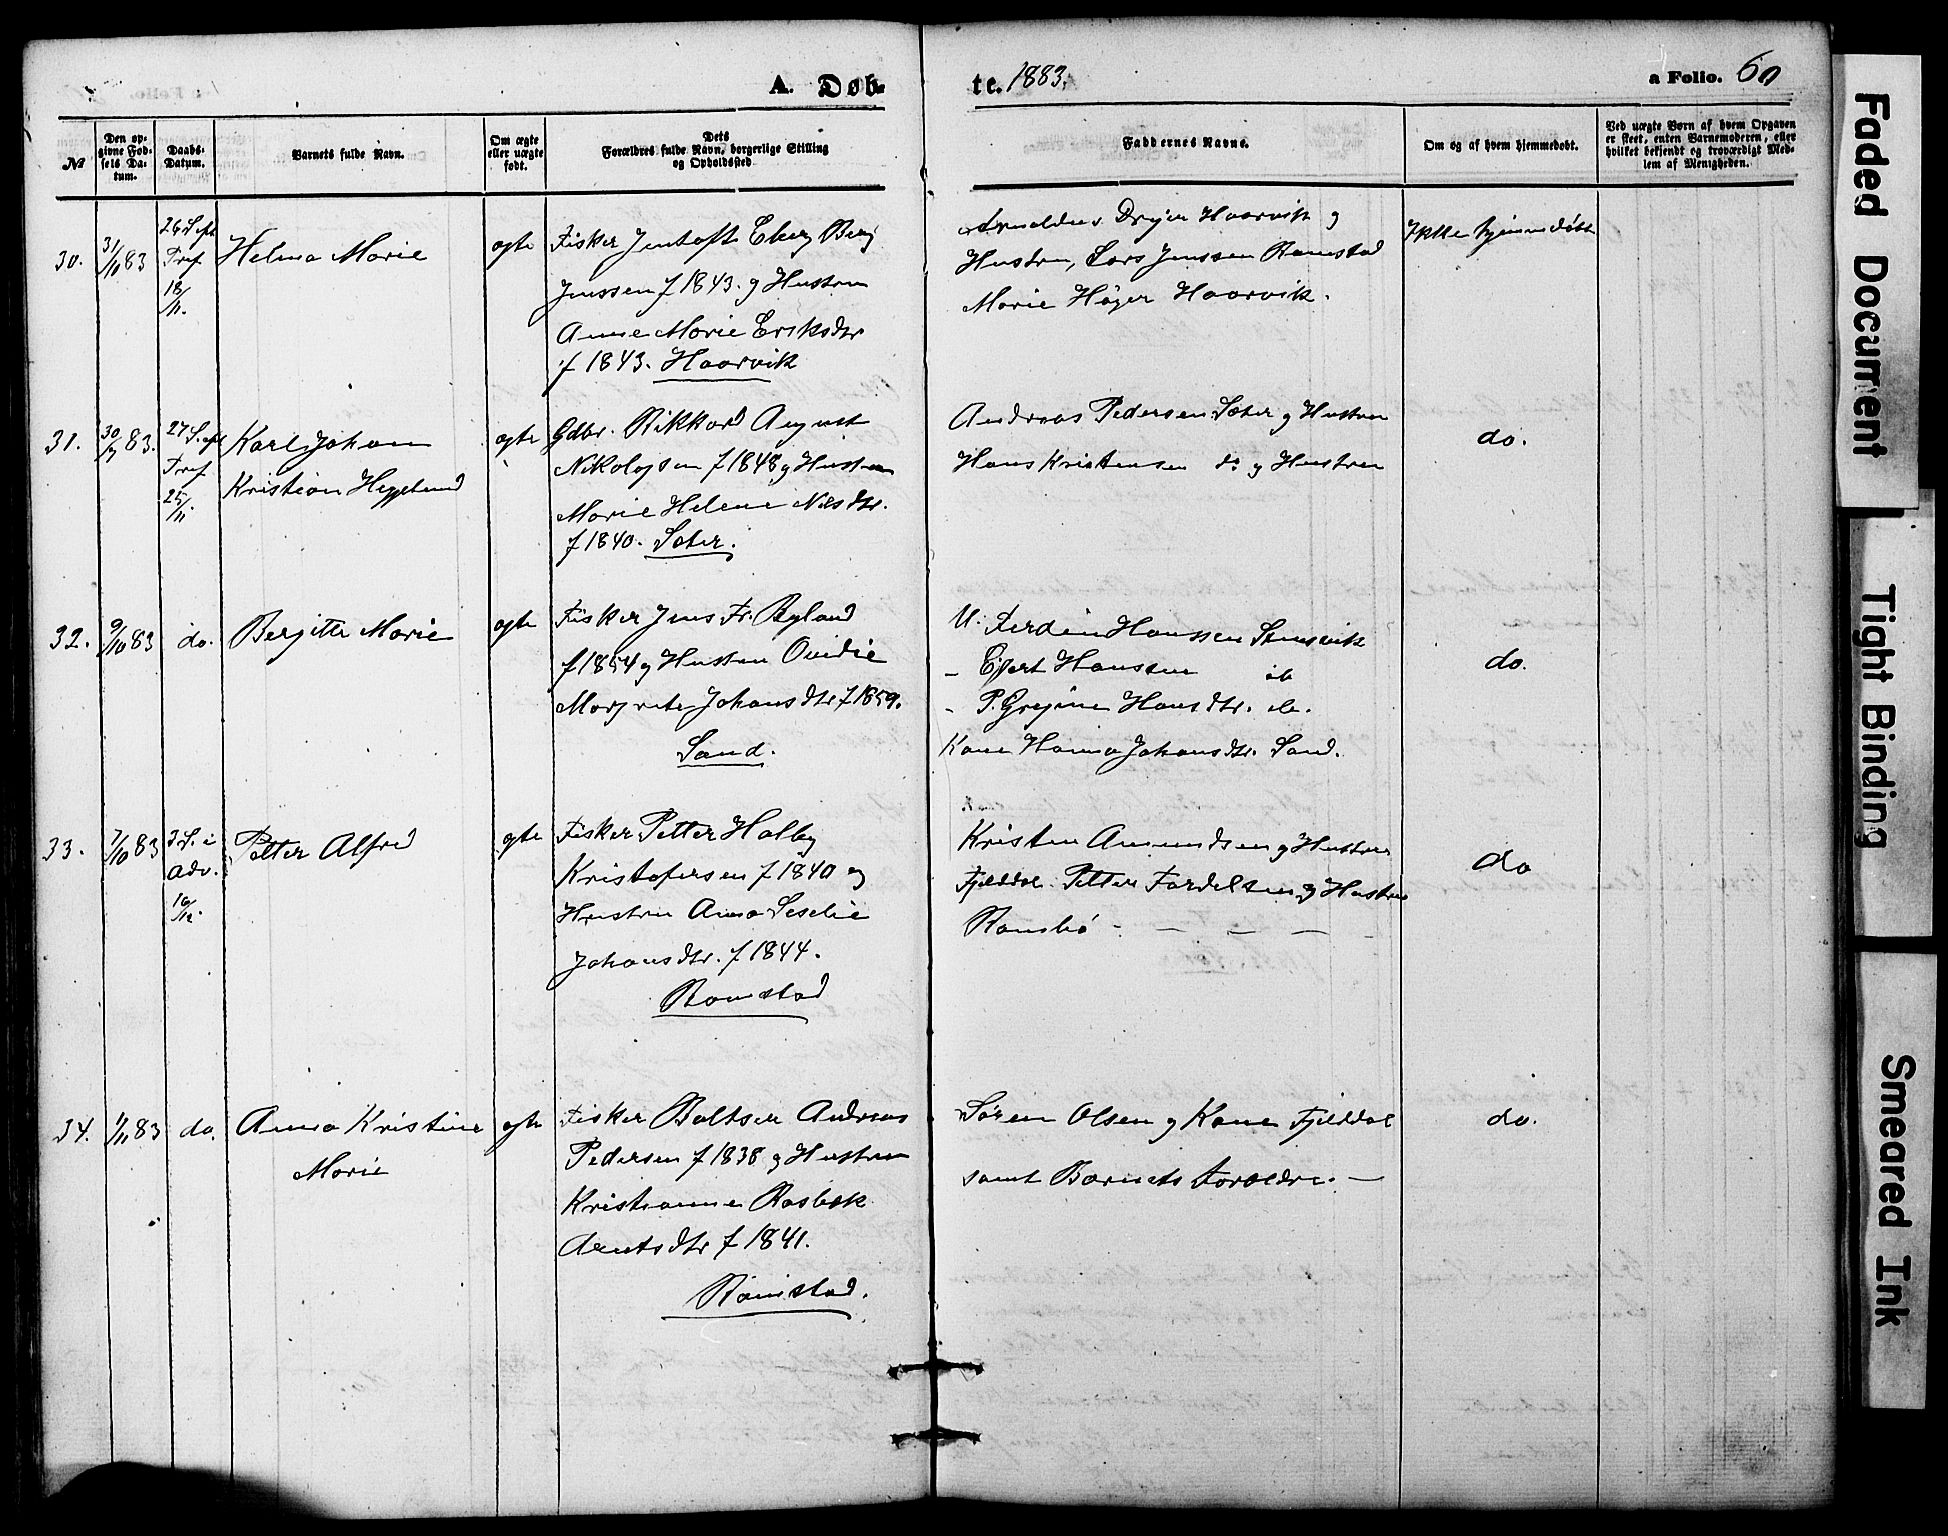 A. Døb-
te. 1883.
a Folio. 60
№
Den op-
givne Fød-
sels Da-
tum.
Daabs-
Datum.
Barnets fulde Navn.
Om ægte
eller uægte
født.
Dets
Forældres fulde Navn, borgerlige Stilling
og Opholdssted.
Faddernes Navne.
Om og af hvem hjemmedøbt.
Ved uægte Børn af hvem Opgaven
er skeet, enten Barnemoderen, eller
hvilket bekjendt og troværdigt Med-
lem af Menigheden.
30.
31/10 83
26 S. eft
Tref
18/11.
Helma Marie
ægte
Fisker Jentoft Eberg Berg
Jenssen f 1843. og Hustru
Anne Marie Eriksdtr
f 1843. Haarvik
Arnoldus Dreyer Haarvik og
Hustru, Lars Jenssen Ramstad
Marie Høyer Haarvik.
Ikke hjemmedøbt
31.
30/9 83.
27 S. eft
Tref
25/11.
Karl Johan
Kristian Heggelund
ægte
Gdbr. Rikkard August
Nikolajsen f 1848 og Hustru
Marie Helene Nilsdtr.
f 1840. Sæter.
Andreas Pedersen Sæter og Hustru
Hans Kristensen do og Hustru
do.
32.
9/10 83
do.
Bergitte Marie
ægte
Fisker Jens Fr. Byland
f 1854 og Hustru Ovidie
Margrete Johansdtr f 1859.
Sand.
U. Ferdin Hanssen Stensvik
- Ejert Hanssen ib
- P. Gregine Hansdtr. ib.
Kone Hanna Johansdtr. Sand.
do.
33.
7/10 83
2 S. i
Adv.
10/12.
Petter Alfred
ægte
Fisker Petter Holby
Kristofersen f 1840 og
Hustru Anna Seselie
Johansdtr. f 1844.
Ramstad
Kristen Amundsen og Hustru
Fjelddal. Petter Fordelsen og Hustru
Ramsbø - — — — -
do
34.
1/11 83
do.
Anna Kristine
Marie
ægte
Fisker Baltser Andreas
Pedersen f 1838 og Hustru
Kristianne Rasbek
Arntsdtr f 1841.
Ramstad.
Søren Olsen og Kone Fjelddal
samt Barnets Forældre. —
do.
Faded Document
Tight Binding
Smeared Ink